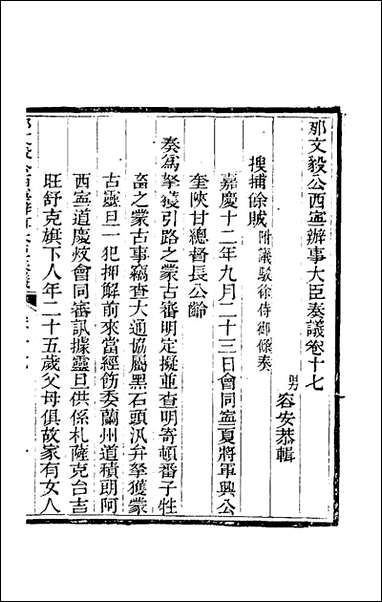 那文毅公西寧辦事大臣奏議卷十七
男容安恭輯
搜捕餘賊附議駁徐侍御條奏
嘉慶十二年九月二十三日會同寧夏將軍興公
奎陝甘總督長公齡
奏為拏獲引路之蒙古審明定擬並查明寄頓番子牲
畜之蒙古事竊查大通協屬黑石頭汛弁拏獲蒙
古靈旦一犯押解前來當經飭委蘭州道積朗阿
西寧道慶炆會同審訊據靈旦供係札薩克台吉
旺舒克旗下人年二十五歲父母俱故家有女人